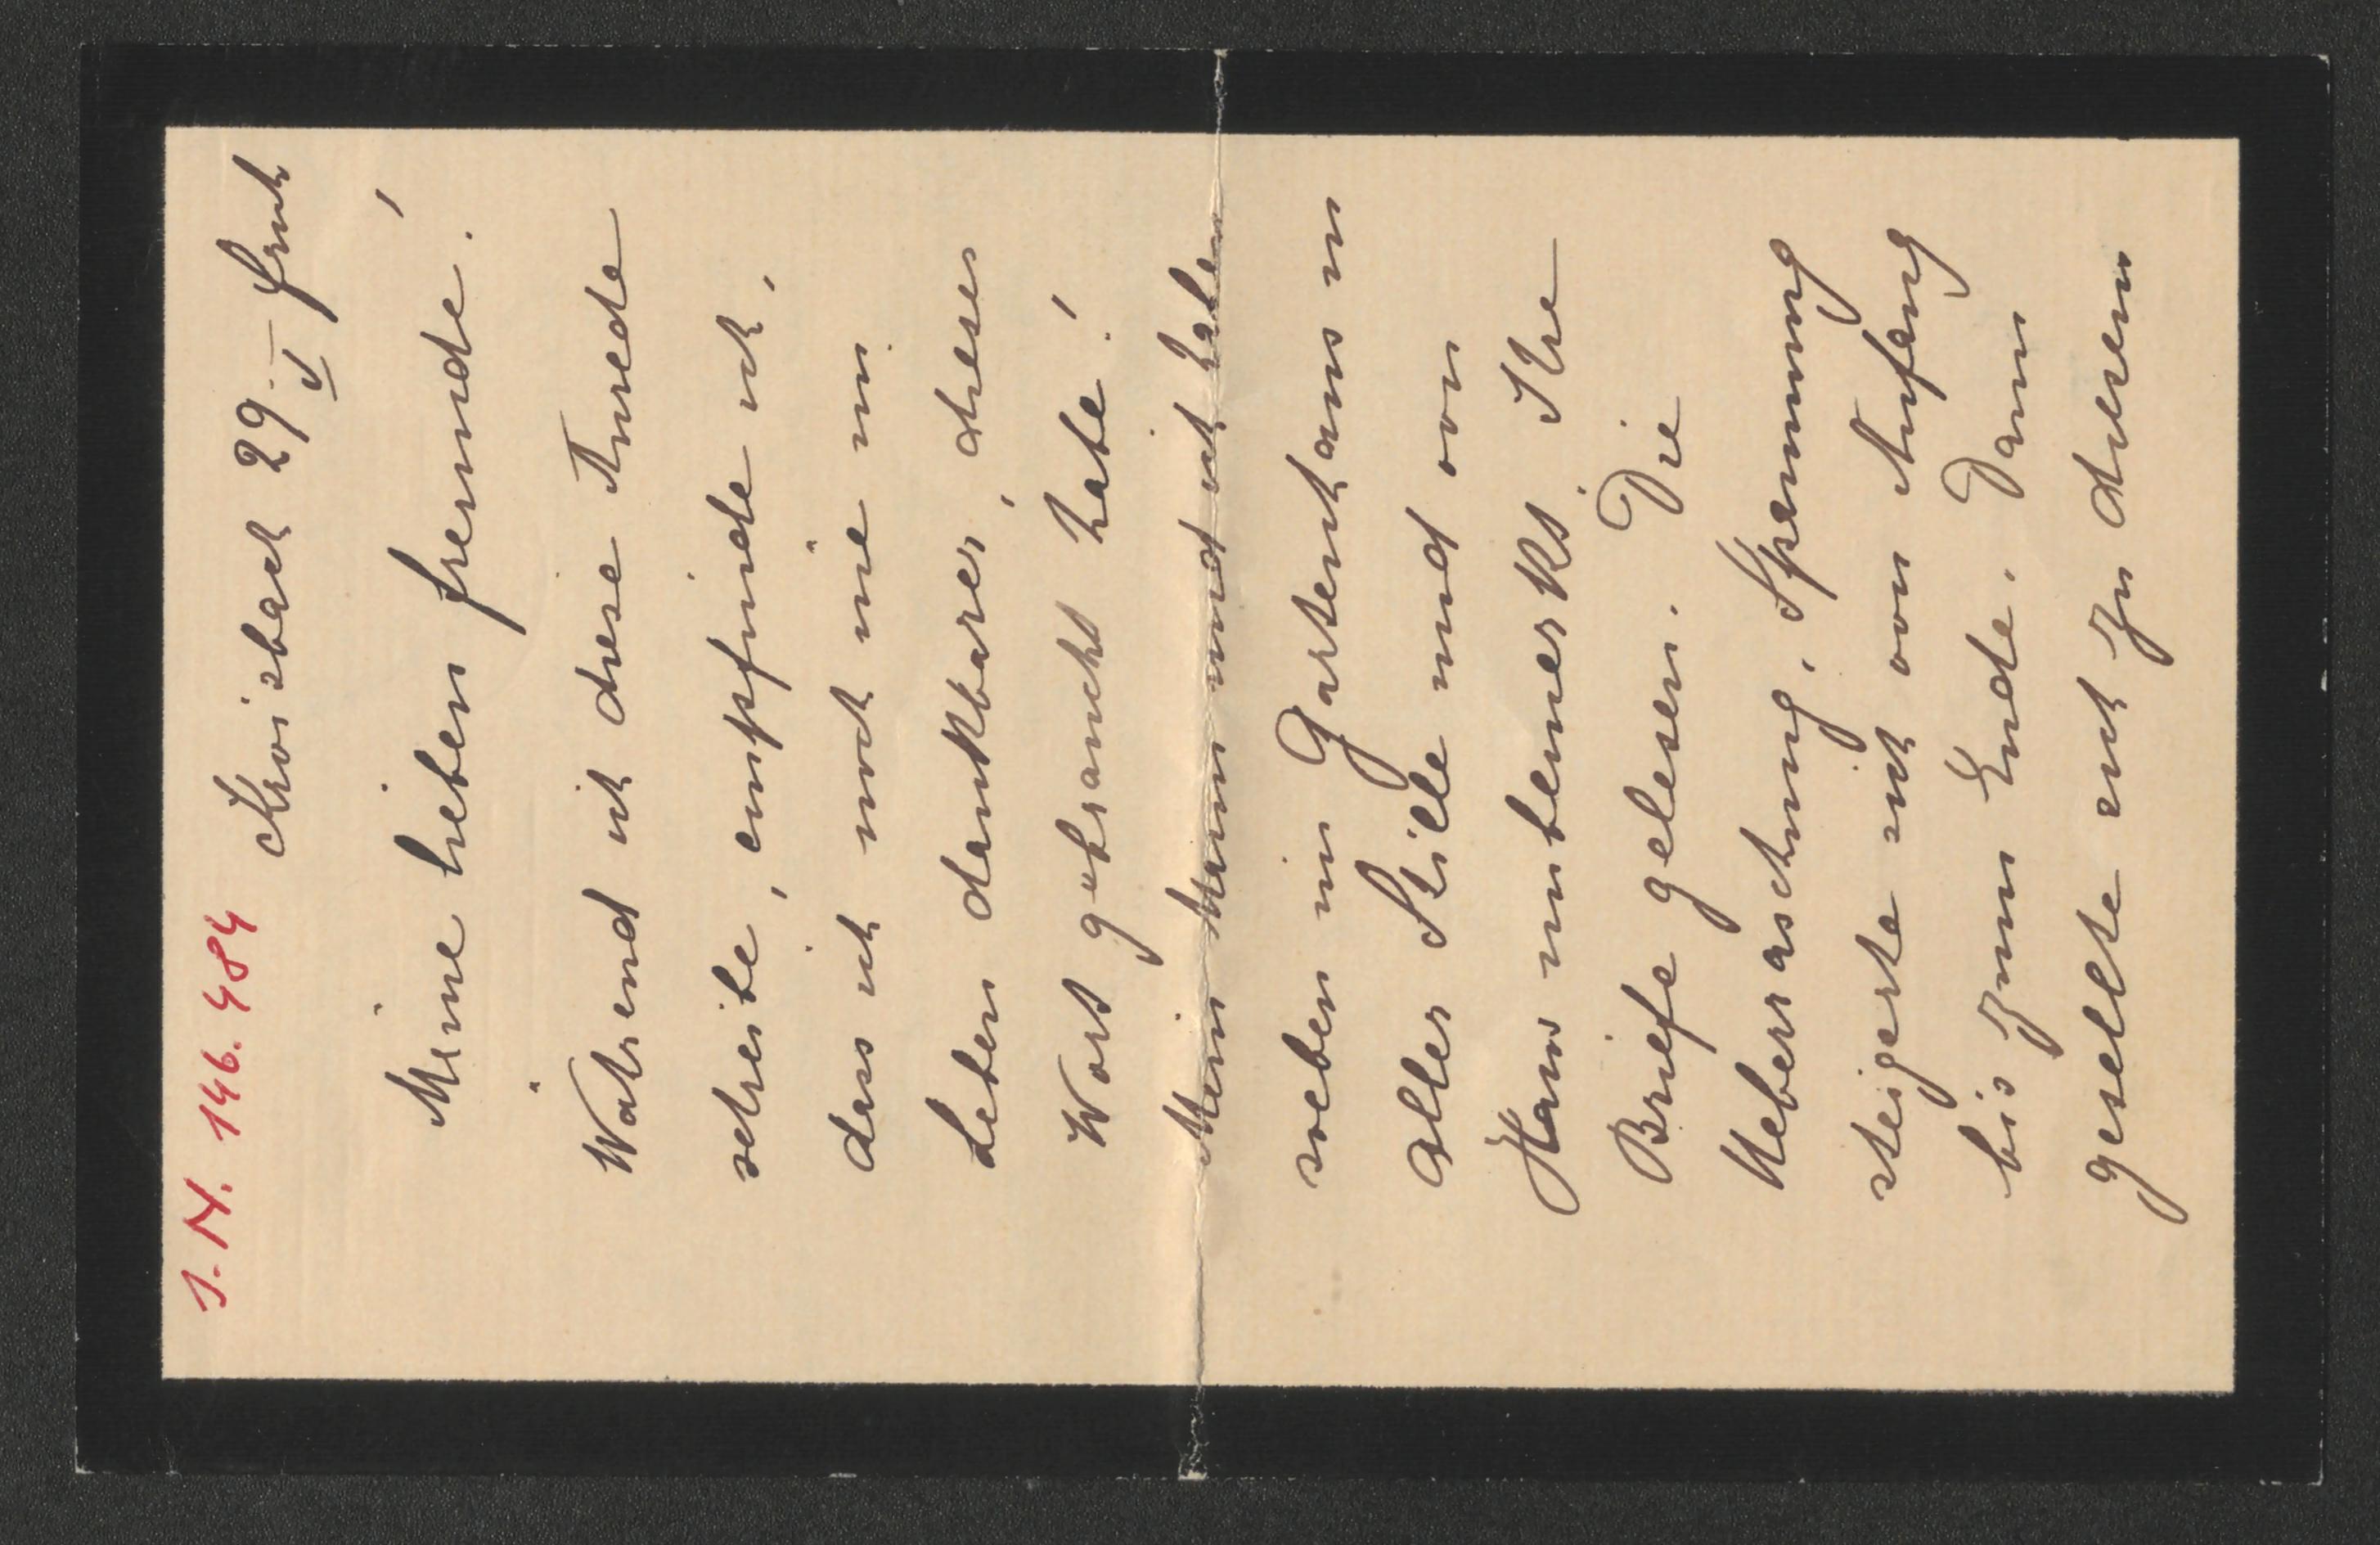 J. N. 146.484
Kroisbach 29. V früh
Meine lieben freunde!
Während ich diese Anrede
schreibe, empfinde ich,
dass ich noch nie im
Leben dankbarer, dieses
Wort gebraucht habe!
Mein Mann und ich haben
soeben im Gartenhaus in
aller Stille und von
Haus unbemerkt, Ihre
Briefe gelesen. Die
Ueberraschung, Spannung
steigerte sich von Anfang
bis zum Ende. Dann
gesellte sich zu diesem